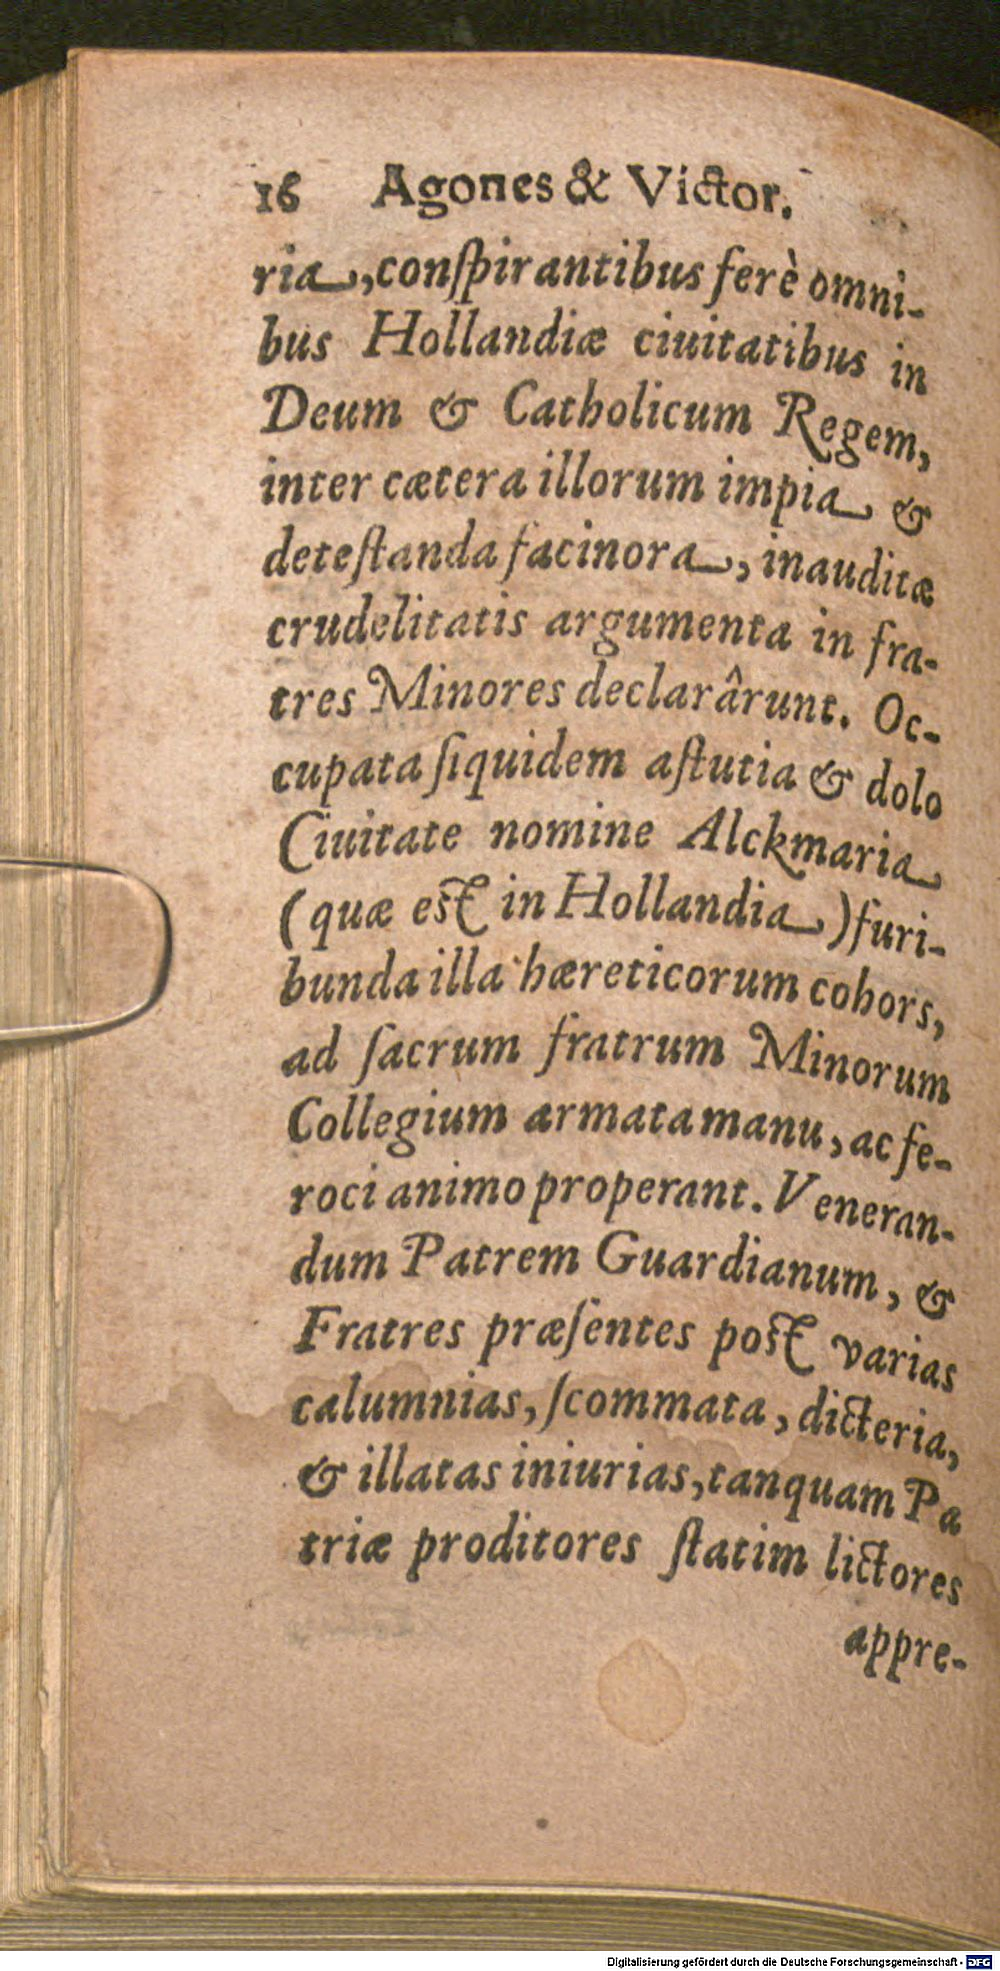 16 Agones & Victor.
ria, conſpirantibus ferè omni-
bus Hollandiæ ciuitatibus in
Deum & Catholicum Regem,
inter cætera illorum impia &
deteſtanda facinora, inauditæ
crudelitatis argumenta in fra-
tres Minores declarârunt. Oc-
cupata ſiquidem aſtutia & dolo
Ciuitate nomine Alckmaria
(quæ est in Hollandia) furi-
bunda illa hæreticorum cohors,
ad ſacrum fratrum Minorum
Collegium armata manu, ac fe-
roci animo properant. Veneran-
dum Patrem Guardianum, &
Fratres præſentes post varias
calumnias, ſcommata, dicteria,
& illatas iniurias, tanquam Pa
triæ proditores ſtatim lictores
appre-
Digitalisierung gefördert durch die Deutsche Forschungsgemeinschaft - DFG